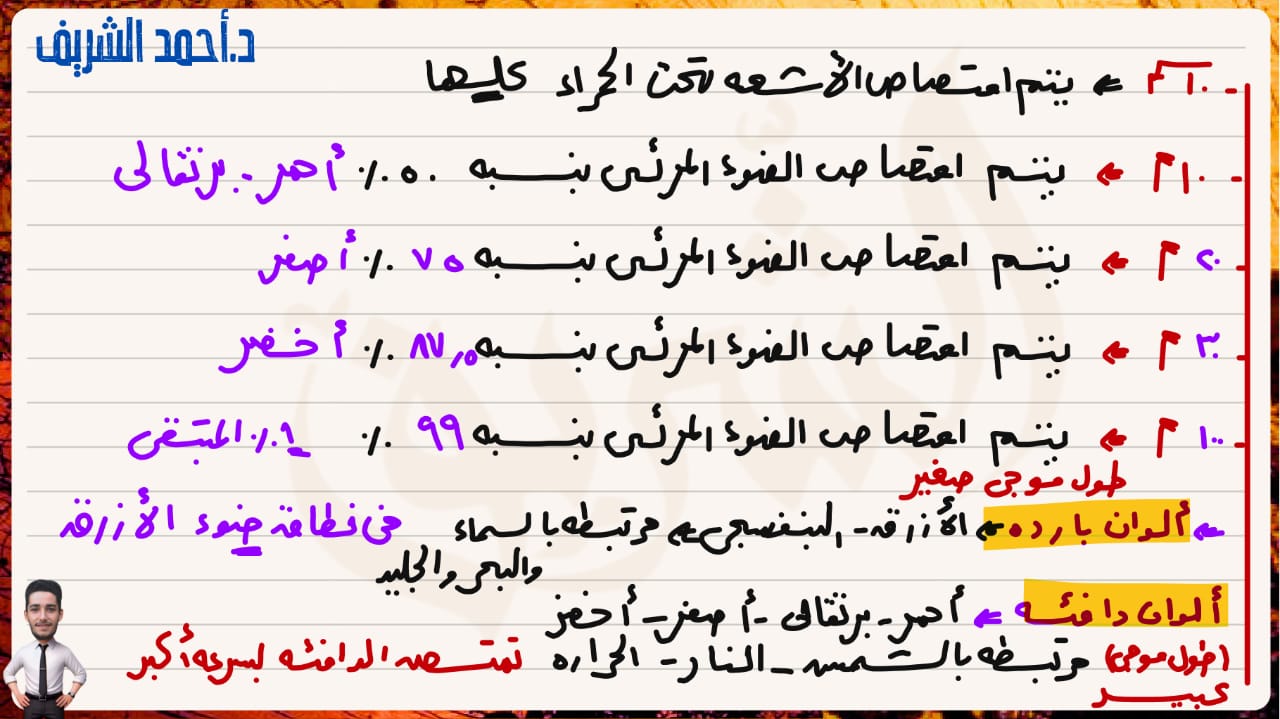 د.أحمد الشريف
يتم امتصاص الأشعه تحت الحمراء كليها
١٠ م ← يتم امتصاص الضوء المرئى بنسبه ٥٠٪ أحمر - برتقالى
٢٠ م ← يتم امتصاص الضوء المرئى بنسبه ٧٥٪ أصفر
٣٠ م ← يتم امتصاص الضوء المرئى بنسبه ٨٧,٥٪ أخضر
١٠٠ م ← يتم امتصاص الضوء المرئى بنسبه ٩٩٪ ١٪ المتبقى
طول موجى صغير
← ألوان بارده ← الأزرق - البنفسجى ← مرتبطه بالسماء فى نطاق ضوء الأزرق
والبحر والجليد
ألوان دافئه ← أحمر - برتقالى - أصفر - أخضر
(طول موجى) مرتبطه بالشمس - النار - الحراره تمتص الدافئه بسرعه أكبر
كبير